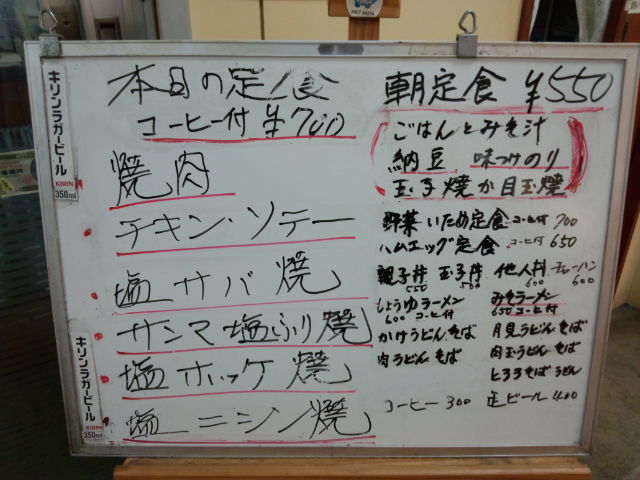 2007 AKITA
キリンラガービール
KIRIN
350ml
キリンラガービール
KIRIN
350ml
本日の定食
コーヒー付 ¥700
焼肉
チキン・ソテー
塩サバ焼
サンマ塩ふり焼
塩ホッケ焼
塩ニシン焼
朝定食 ¥550
ごはんとみそ汁
納豆 味つけのり
玉子焼か目玉焼
野菜いため定食 コーヒー付 700
ハムエッグ定食 コーヒー付 650
親子丼 玉子丼 他人丼 チャーハン
550 500 600 600
しょうゆラーメン みそラーメン
600 コーヒー付 650 コーヒー付
かけうどん.そば 月見うどん.そば
肉うどん そば 肉玉うどん そば
とろろそば うどん
コーヒー 300 生ビール 400